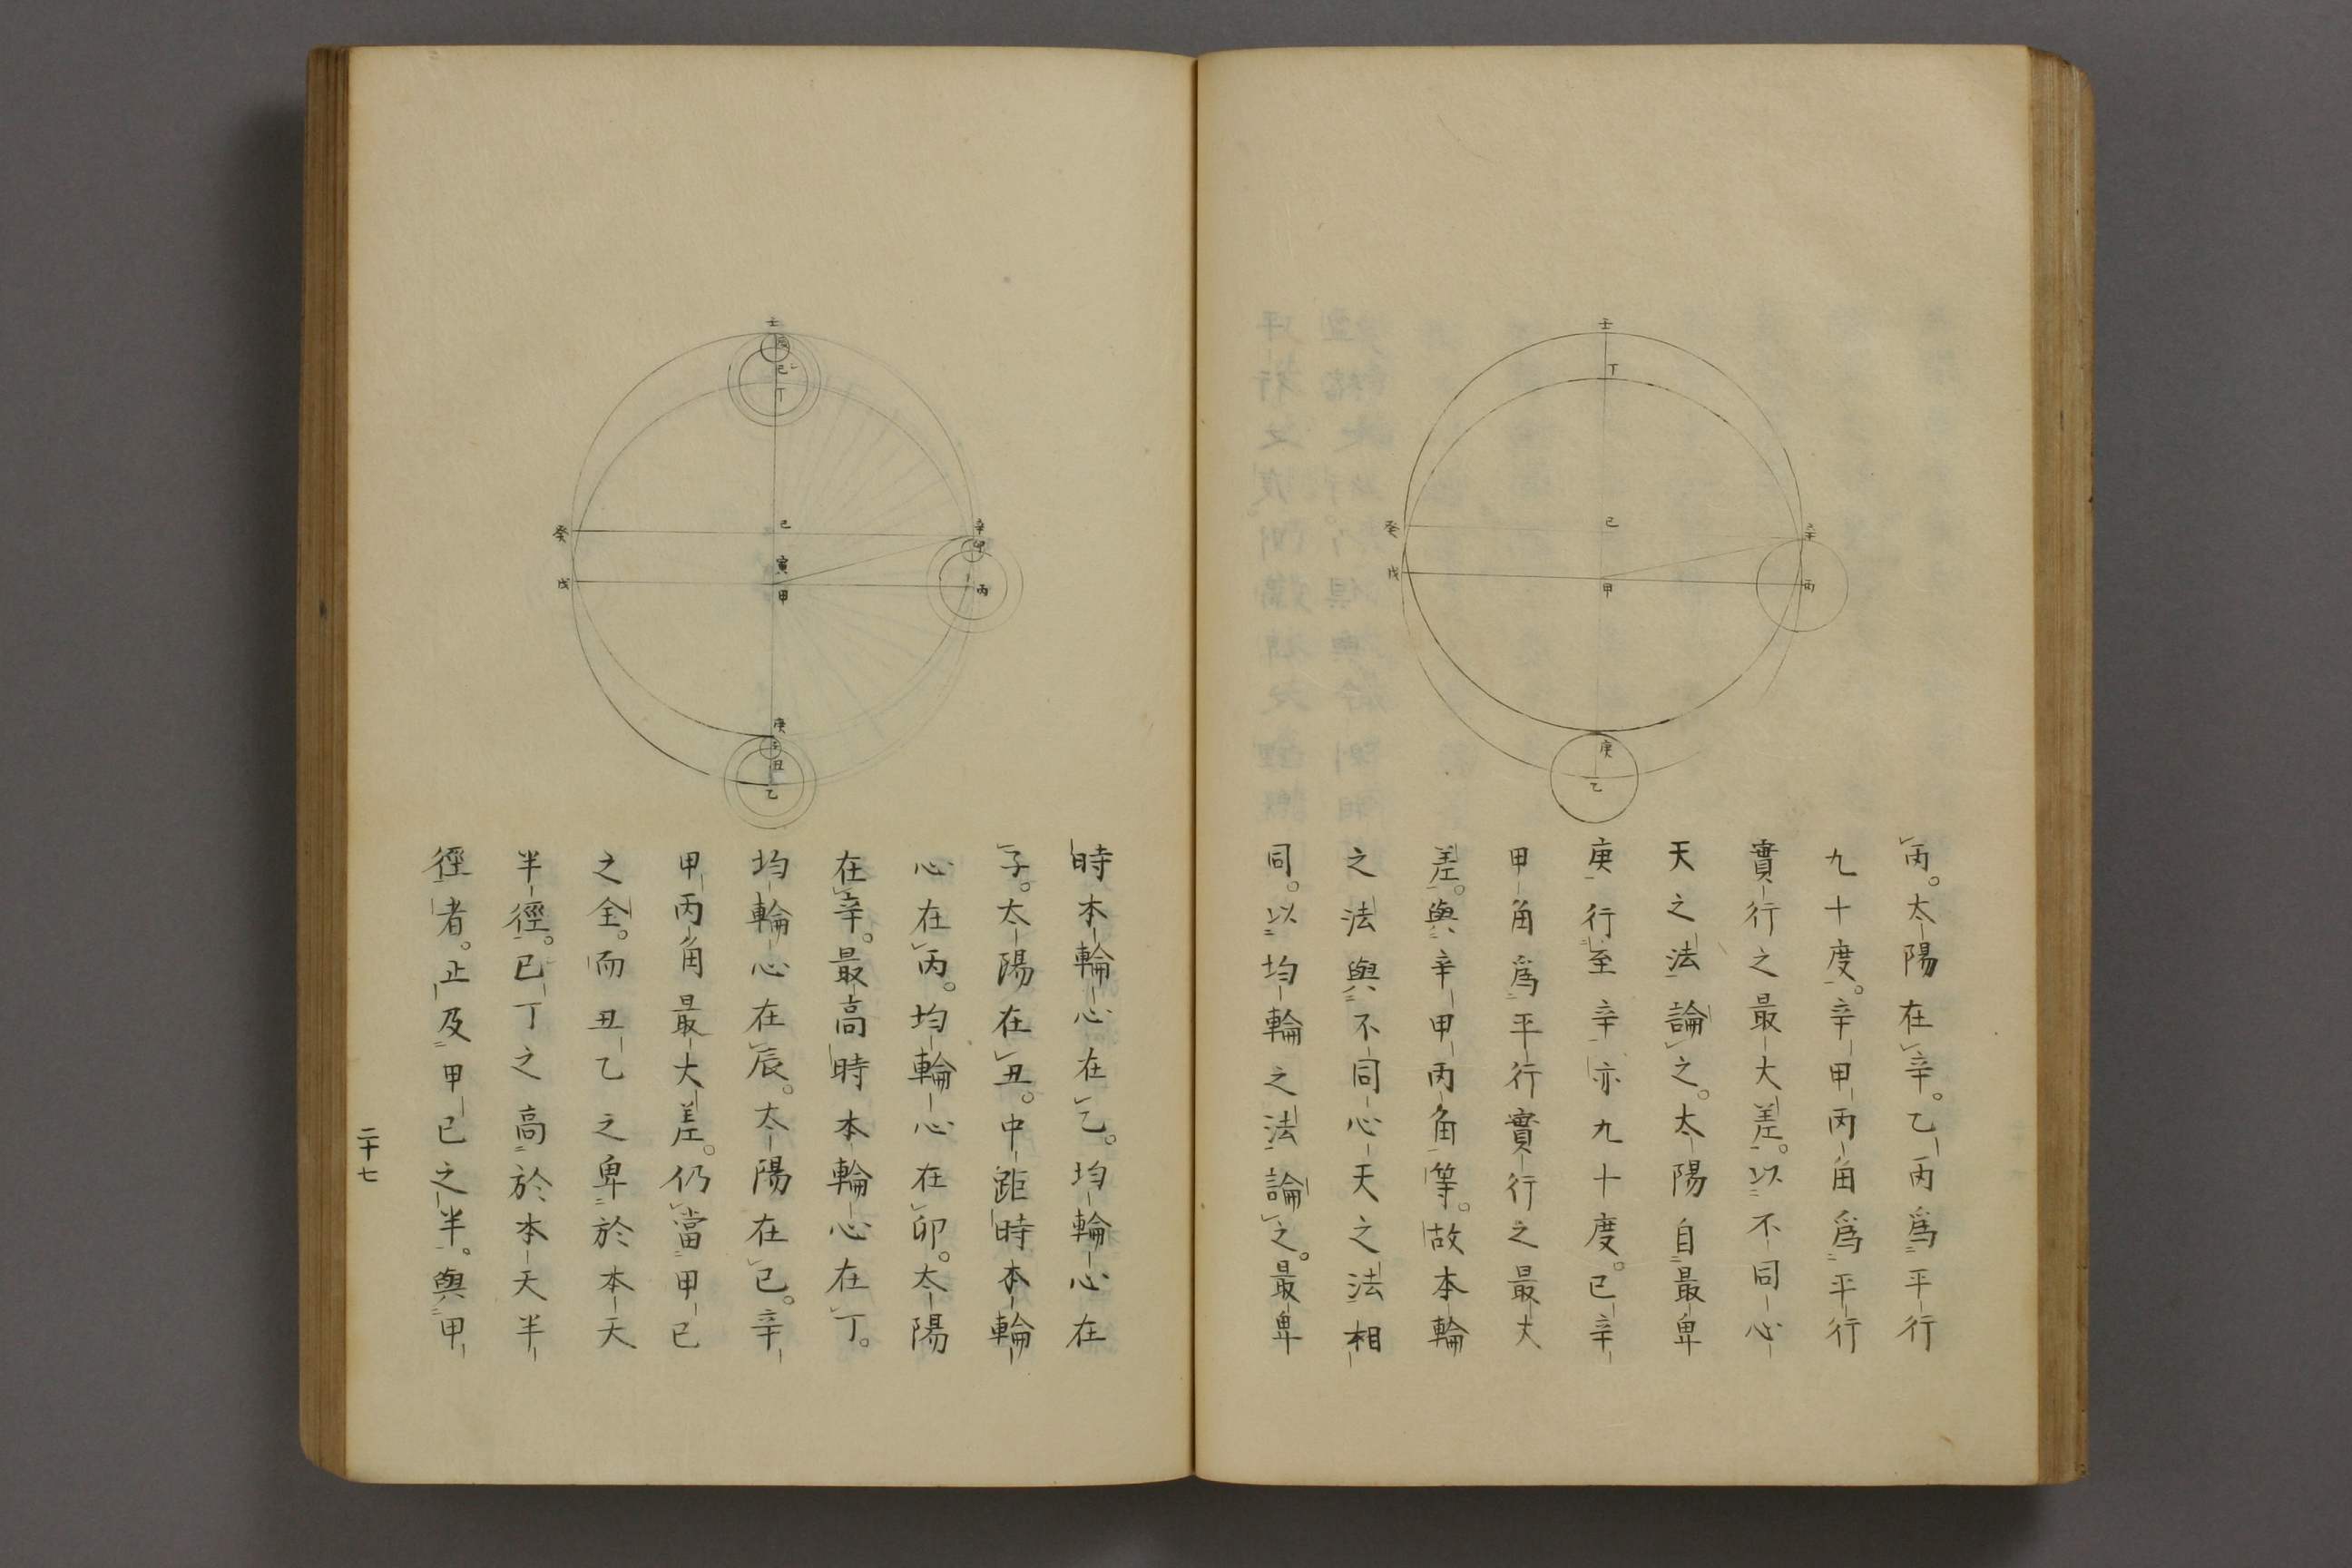 壬
丁
己
癸
辛
戊
甲
丙
庚
乙
丙。太陽在辛。乙丙爲平行
九十度。辛甲丙角爲平行
實行之最大差。以不同心
天之法論之。太陽自最卑
庚行至辛亦九十度。己辛
甲角爲平行實行之最大
差。與辛甲丙角等。故本輪
之法與不同心天之法相
同。以均輪之法論之。最卑
壬
辰
己
丁
己
癸
辛
卯
寅
戊
甲
丙
庚
子
丑
乙
時本輪心在乙。均輪心在
子。太陽在丑。中距時本輪
心在丙。均輪心在卯。太陽
在辛。最高時本輪心在丁。
均輪心在辰。太陽在巳。辛
甲丙角最大差。仍當甲己
之全。而丑乙之卑於本天
半徑。巳丁之高於本天半
徑者。止及甲己之半。與甲
二十七